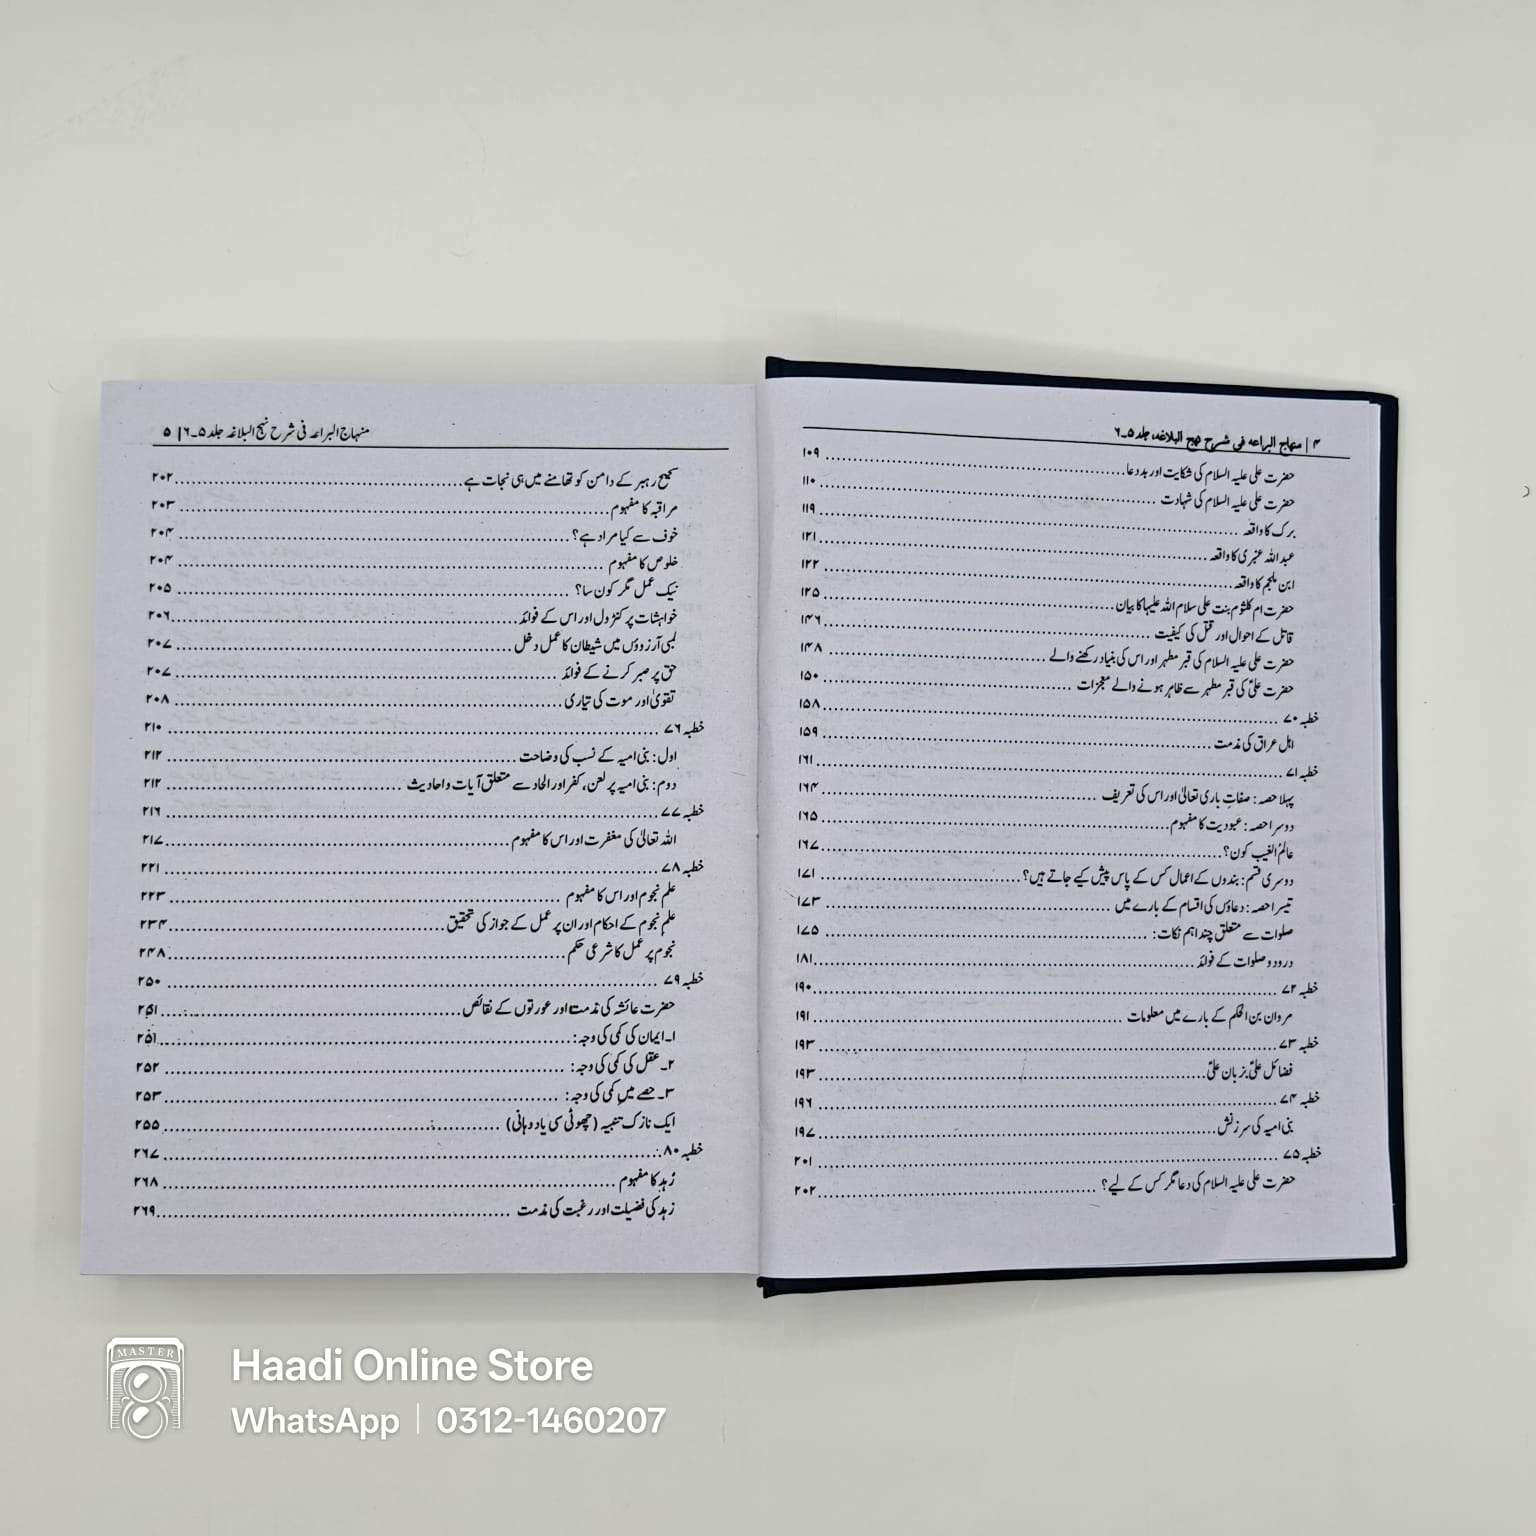 ۴ | منہاج البراعہ فی شرح نہج البلاغہ، جلد ۵۔۶
حضرت علی علیہ السلام کی شکایت اور بددعا ........ ۱۰۹
حضرت علی علیہ السلام کی شہادت ........ ۱۱۰
برک کا واقعہ ........ ۱۱۹
عبداللہ عنبری کا واقعہ ........ ۱۲۱
ابن ملجم کا واقعہ ........ ۱۲۲
حضرت ام کلثوم بنت علی سلام اللہ علیہا کا بیان ........ ۱۲۵
قاتل کے احوال اور قتل کی کیفیت ........ ۱۴۶
حضرت علی علیہ السلام کی قبر مطہر اور اس کی بنیاد رکھنے والے ........ ۱۴۸
حضرت علیؑ کی قبر مطہر سے ظاہر ہونے والے معجزات ........ ۱۵۰
خطبہ ۷۰ ........ ۱۵۸
اہل عراق کی مذمت ........ ۱۵۹
خطبہ ۷۱ ........ ۱۶۱
پہلا حصہ: صفاتِ باری تعالیٰ اور اس کی تعریف ........ ۱۶۴
دوسرا حصہ: عبودیت کا مفہوم ........ ۱۶۵
عالمُ الغیب کون؟ ........ ۱۶۷
دوسری قسم: بندوں کے اعمال کس کے پاس پیش کیے جاتے ہیں؟ ........ ۱۷۱
تیسرا حصہ: دعاؤں کی اقسام کے بارے میں ........ ۱۷۳
صلوات سے متعلق چند اہم نکات: ........ ۱۷۵
درود و صلوات کے فوائد ........ ۱۸۱
خطبہ ۷۲ ........ ۱۹۰
مروان بن الحکم کے بارے میں معلومات ........ ۱۹۱
خطبہ ۷۳ ........ ۱۹۳
فضائل علیؑ بزبان علیؑ ........ ۱۹۳
خطبہ ۷۴ ........ ۱۹۶
بنی امیہ کی سرزنش ........ ۱۹۷
خطبہ ۷۵ ........ ۲۰۱
حضرت علی علیہ السلام کی دعا مگر کس کے لیے؟ ........ ۲۰۲
منہاج البراعہ فی شرح نہج البلاغہ جلد ۵۔۶ | ۵
صحیح رہبر کے دامن کو تھامنے میں ہی نجات ہے ........ ۲۰۲
مراقبہ کا مفہوم ........ ۲۰۳
خوف سے کیا مراد ہے؟ ........ ۲۰۴
خلوص کا مفہوم ........ ۲۰۴
نیک عمل مگر کون سا؟ ........ ۲۰۵
خواہشات پر کنٹرول اور اس کے فوائد ........ ۲۰۶
لمبی آرزوؤں میں شیطان کا عمل دخل ........ ۲۰۷
حق پر صبر کرنے کے فوائد ........ ۲۰۷
تقویٰ اور موت کی تیاری ........ ۲۰۸
خطبہ ۷۶ ........ ۲۱۰
اول: بنی امیہ کے نسب کی وضاحت ........ ۲۱۲
دوم: بنی امیہ پر لعن، کفر اور الحاد سے متعلق آیات و احادیث ........ ۲۱۲
خطبہ ۷۷ ........ ۲۱۶
اللہ تعالیٰ کی مغفرت اور اس کا مفہوم ........ ۲۱۷
خطبہ ۷۸ ........ ۲۲۱
علم نجوم اور اس کا مفہوم ........ ۲۲۳
علم نجوم کے احکام اور ان پر عمل کے جواز کی تحقیق ........ ۲۳۴
نجوم پر عمل کا شرعی حکم ........ ۲۴۸
خطبہ ۷۹ ........ ۲۵۰
حضرت عائشہ کی مذمت اور عورتوں کے نقائص ........ ۲۵۱
۱۔ ایمان کی کمی کی وجہ: ........ ۲۵۱
۲۔ عقل کی کمی کی وجہ: ........ ۲۵۲
۳۔ حصے میں کمی کی وجہ: ........ ۲۵۳
ایک نازک تنبیہ (چھوٹی سی یاد دہانی) ........ ۲۵۵
خطبہ ۸۰ ........ ۲۶۷
زُہد کا مفہوم ........ ۲۶۸
زہد کی فضیلت اور رغبت کی مذمت ........ ۲۶۹
MASTER
Haadi Online Store
WhatsApp | 0312-1460207